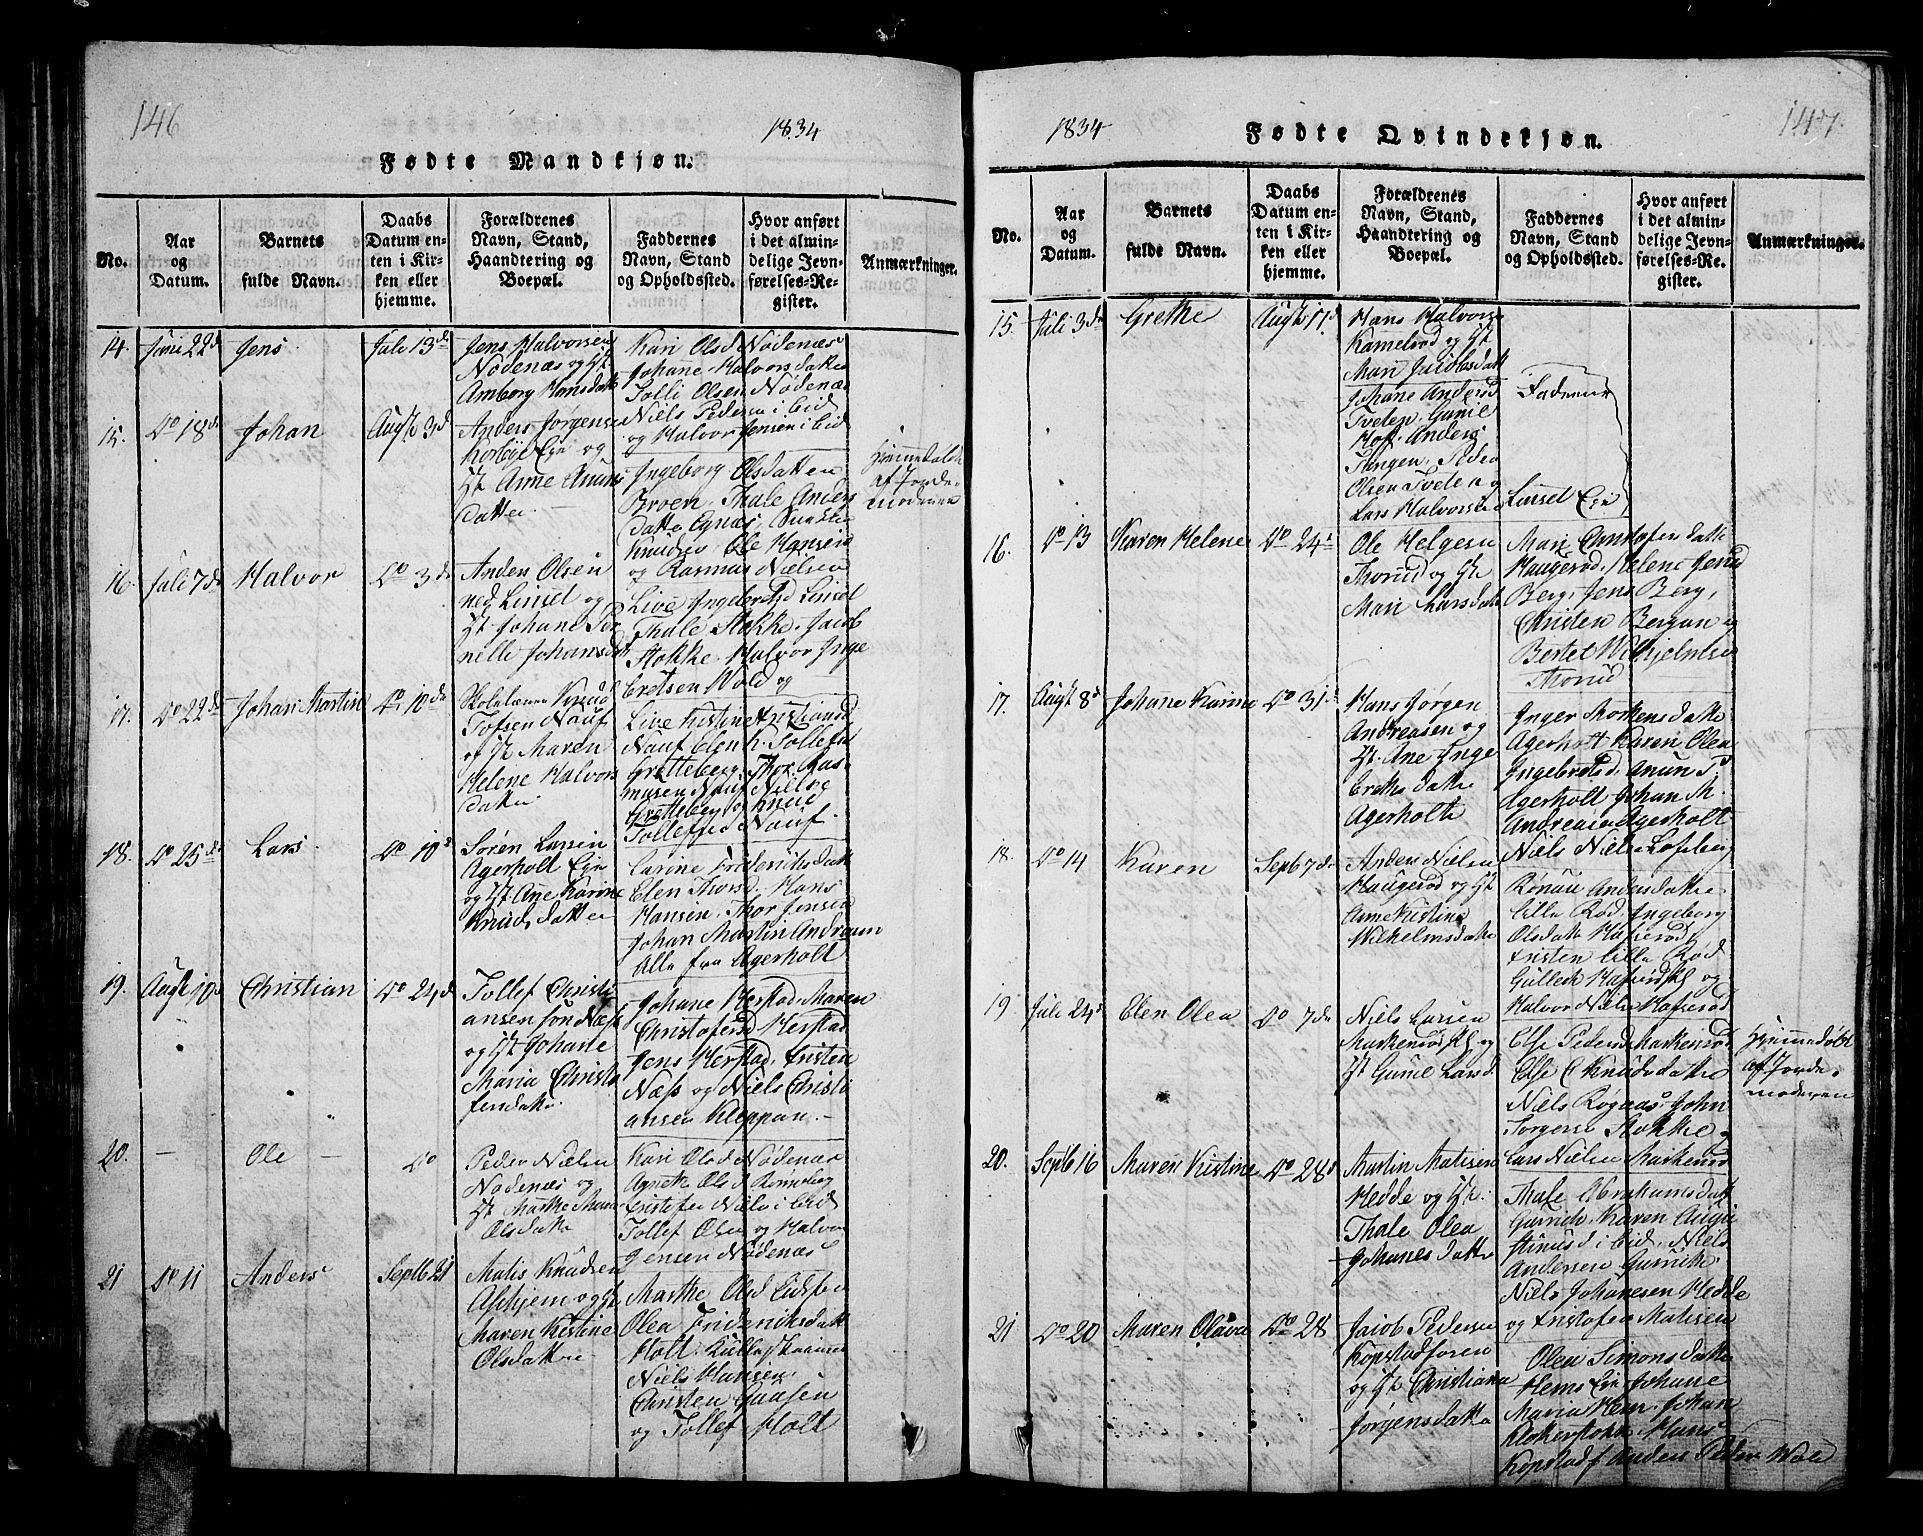 146
1834
Fødte Mandkjøn.
No.
Aar
og
Datum.
Barnets
fulde Navn.
Daabs
Datum en-
ten i Kir-
ken eller
hjemme.
Forældrenes
Navn, Stand,
Haandtering og
Boepæl.
Faddernes
Navn, Stand
og Opholdssted.
Hvor anført
i det almin-
delige Jevn-
førelses-Re-
gister.
Anmærkninger.
14.
Juni 22
Jens
Juli 13
Jens Halvorsen
Nødenæs og
Amborg Hansdatt
Kari Olsd Nødenæs
Johane Halvorsdatter
Tolli Olsen Nødenæs
Niels Peders ibid
og Halvor Jensen ibid
15.
Do 18
Johan
Augt 3
Anders Jørgensen
Eje og
Anne
datter
Ingeborg Olsdatter
Broen, Thale Anders
datter
Knudsen, Ole Hansen
og Rasmus Nielsen
Hjemmedøbt
af Jorde-
moderen
16.
Juli 7
Halvor
Do 3
Anders Olsen
ned Linset og
Johane
nelle Johansd
Live Ingebretsd Linset
Thale Stokke, Jacob
Stokke, Halvor Inge
bretsen Wold og
17.
Do 22
Johan Martin
Do 10
Skolelærer Knud
Tofsen Nauf
og Maren
Helene Halvors
datter
Live Kistine Kristiansd
Nauf Elen K. Tollefsd
Gretteberg, Thor Ras-
musen Nauf Niels
Gretteberg og Knud
Tollefsen Nauf.
18.
Do 25
Lars
Do 10
Søren Larsen
Agerholt Eje
og Ane Karine
Knudsdatter
Carine Frederichsdatt
Elen Thorsd, Hans
Hansen, Thor Jensen
Johan Martin Andresen
Alle fra Agerholt
19.
Augt 10
Christian
Do 24
Tollef Christi
ansen
og Johane
Maria Christo
fersdatter
Johane Herstad, Maren
Christofersd Herstad
Jens Herstad, Cristen
Næss og Niels Christi
ansen Kleppan.
20.
—
Ole
—
Do
Peder Nielsen
Nødenæs og
Marthe Maria
Olsdatter
Kari Olsd Nødenæs
Agnete Olsd
Cristofer Niels ibid
Tollef Olsen og Halvor
Jensen Nødenæs
21
Do 11
Anders
Septb 21
Matis Knudsen
Askjem og
Maren Kistine
Olsdatter
Marthe Olsd
Olea Frideriksdatt
Holt,
Niels Hansen
Christen
og Tollef Holt
1834
Fødte Qvindekjøn.
147.
No.
Aar
og
Datum.
Barnets
fulde Navn.
Daabs
Datum en-
ten i Kir-
ken eller
hjemme.
Forældrenes
Navn, Stand,
Haandtering og
Boepæl.
Faddernes
Navn, Stand
og Opholdssted.
Hvor anført
i det almin-
delige Jevn-
førelses-Re-
gister.
Anmærkninger.
15.
Juli 3
Grethe
Augt 17
Hans Halvors
Kamelrød og
Mari Jacobsdatt
Johane Andersd
Tveten, Gunil
Hof, Anders
Tangen, Peder
Olsen Tveten og
Lars Halvorsen
Fadderne
Linset Eje
16.
Do 13
Karen Helene
Do 24
Ole Helgesen
Thorud og
Mari Larsdatt
Mari Christofersdatter
Haugerød, Helene Jensd
Berg, Jens Berg,
Cristen Bergan og
Bertet Wilhjelmsen
Thorud
17.
Augt 8
Johane Karine
Do 31
Hans Jørgen
Andreasen og
Ane Inge
bretsdatter
Agerholt
Inger Thorkensdatter
Agerholt Karen Olea
Ingebretsd, Anun
Agerholt Johan M.
Andreasen Agerholt
Niels Nielsen
18.
Do 14
Karen
Septb 7
Anders Nielsen
Haugerød og
Anne Kistine
Wilhelmsdatter
Rønau Andersdatter
Lille Rød, Ingeborg
Olsdatt Hafsrød,
Cristen Lille Rød
Gulleck Hafsrød og
Halvor Nielsen Hafsrød
19
Juli 24
Elen Olea
Do 7
Niels Larsen
Markerød og
Gunil Larsd
Else Pedersd Markerød
Else Knudsdatter
Niels Rognaas, John
Torgersen Stokke og
Lars Nielsen Markerød
Hjemmedøbt
af Jorde-
moderen
20.
Septb 16
Maren Kistine
Do 28
Martin Matisen
Hedde og
Thale Olea
Johanesdatter
Thale Abrahamsdatt
Karen Augu
stinusd ibid, Niels
Andersen
Niels Johanesen Hedde
og Cristofer Matisen
21
Do 20
Maren Olava
Do 28
Jacob Pedersen
Kopstadforen
og Christiana
Jørgensdatter
Olea Simonsdatter
Hems Eje Johane
Maria Hem, Johan
Hans
Kopstad Anders Peder Wold